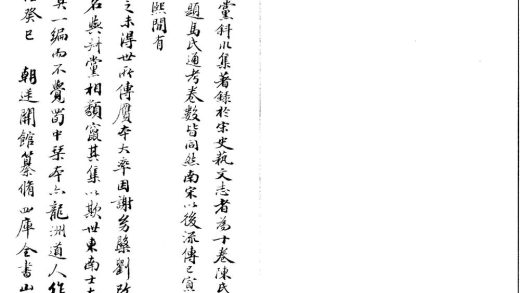 黨斜川集著錄於宋史藝文志者為十卷陳氏
題馬氏通考卷數皆同然南宋以後流傳已寡
熙間有
之未得世所傳贋本大率因謝幼槃劉改
名與叔黨相類竄其集以欺世東南士大
其一編而不覺蜀中琹本亦龍洲道人作
癸巳 朝廷開館纂脩四庫全書山